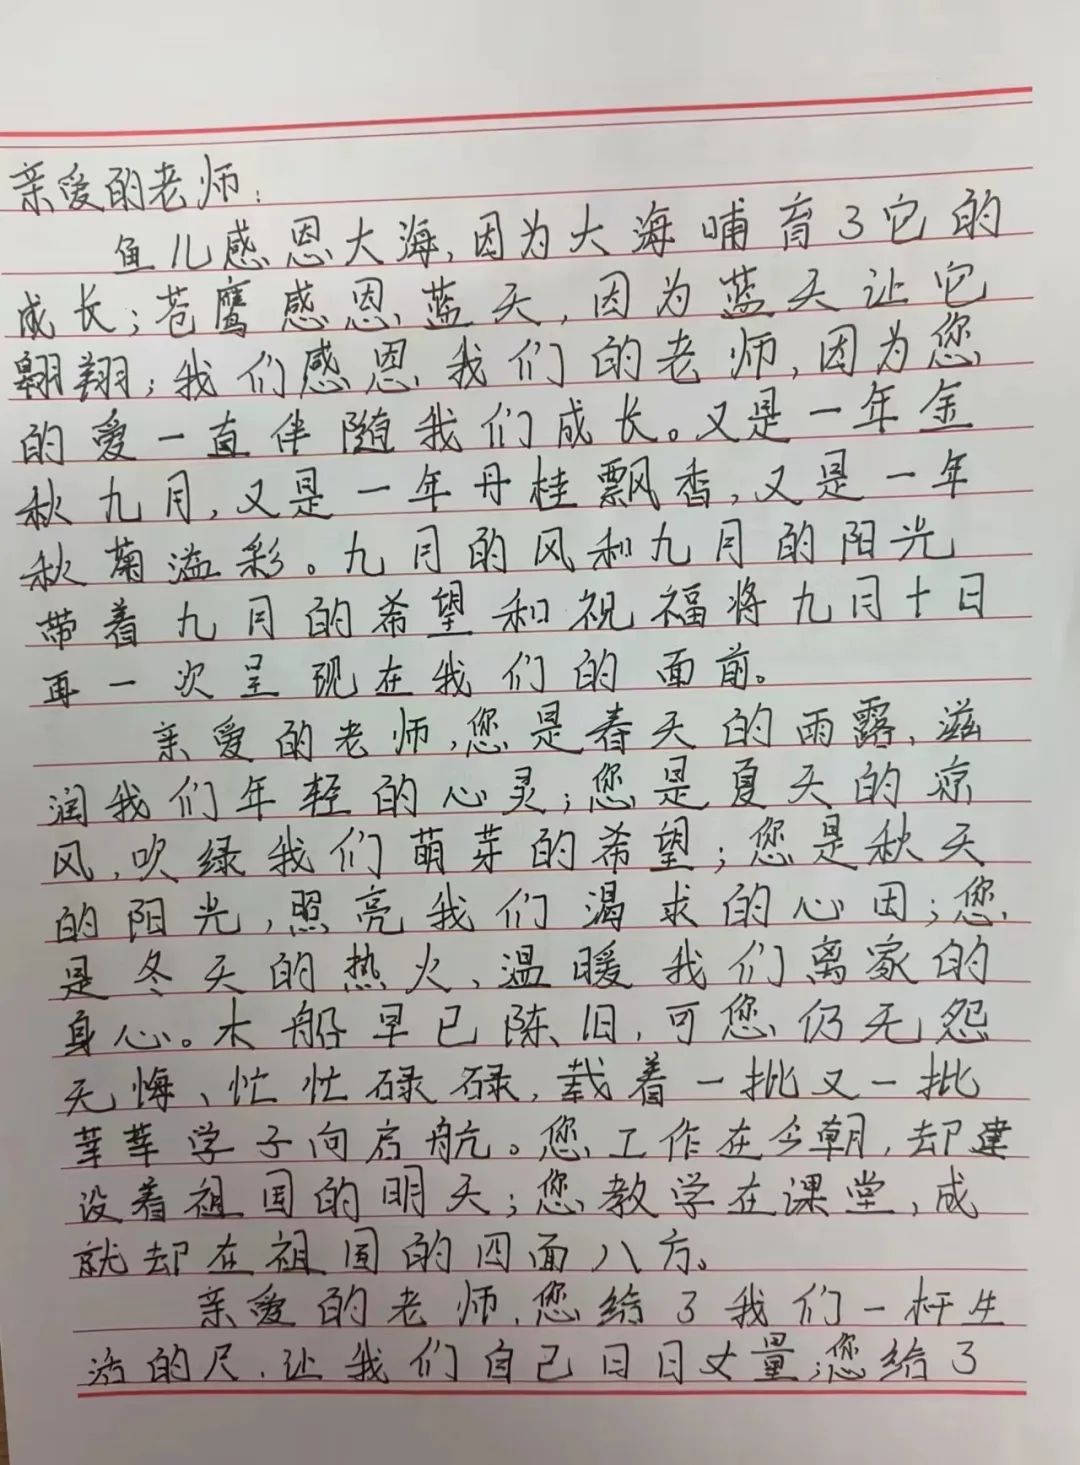 亲爱的老师:
鱼儿感恩大海,因为大海哺育了它的
成长;苍鹰感恩蓝天,因为蓝天让它
翱翔;我们感恩我们的老师,因为您
的爱一直伴随我们成长。又是一年金
秋九月,又是一年丹桂飘香,又是一年
秋菊溢彩。九月的风和九月的阳光
带着九月的希望和祝福将九月十日
再一次呈现在我们的面前。
亲爱的老师,您是春天的雨露,滋
润我们年轻的心灵;您是夏天的凉
风,吹绿我们萌芽的希望;您是秋天
的阳光,照亮我们渴求的心田;您
是冬天的热火,温暖我们离家的
身心。木船早已陈旧,可您仍无怨
无悔、忙忙碌碌,载着一批又一批
莘莘学子向启航。您工作在今朝,却建
设着祖国的明天;您教学在课堂,成
就却在祖国的四面八方。
亲爱的老师,您给了我们一杆生
活的尺,让我们自己日日丈量;您给了